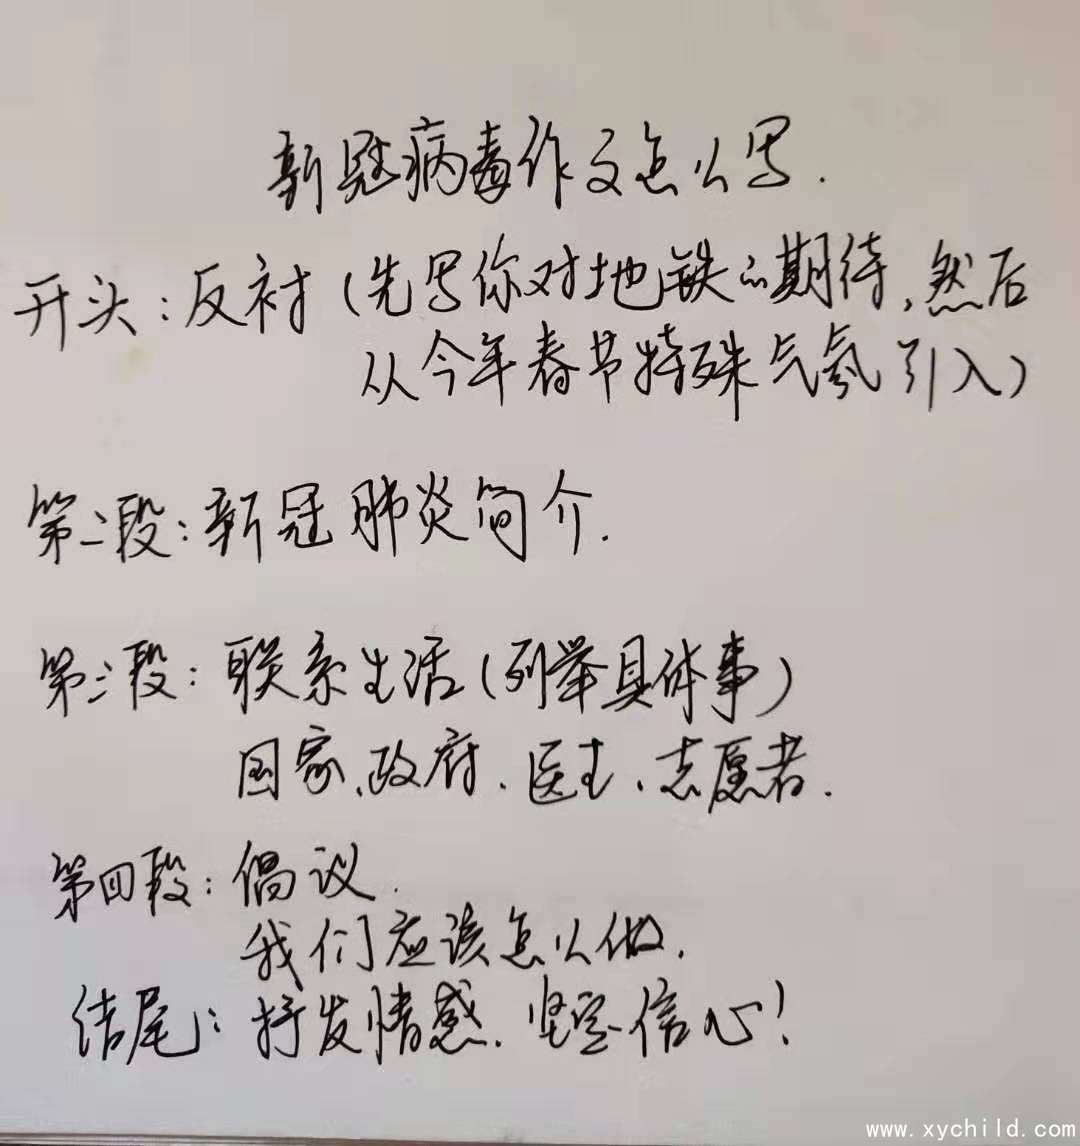 新冠病毒作文怎么写.
开头:反衬(先写你对地铁的期待,然后
从今年春节特殊气氛引入)
第二段:新冠肺炎简介.
第三段:联系生活(列举具体事)
国家、政府、医生、志愿者.
第四段:倡议.
我们应该怎么做.
结尾:抒发情感、坚定信心!
www.xychild.com